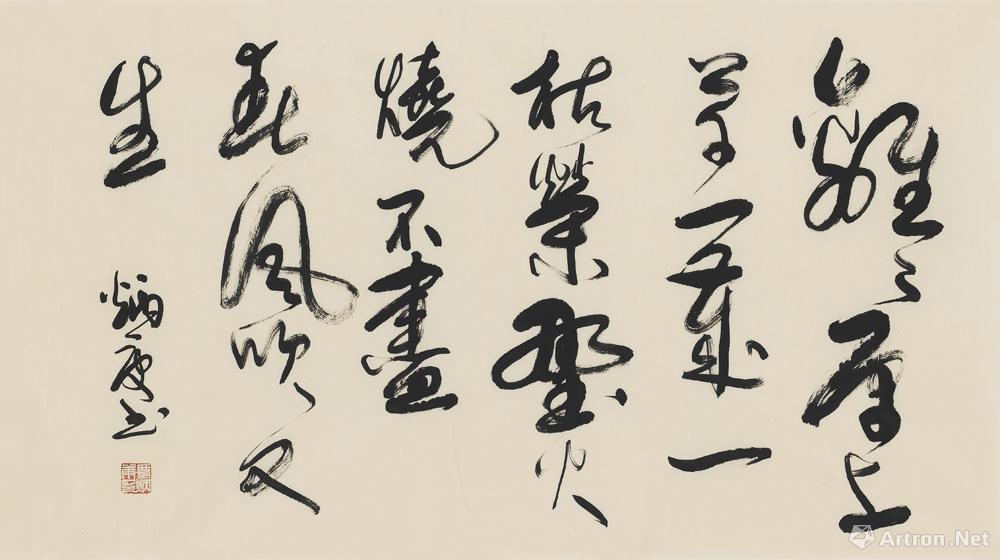 離々原上
草一歲一
枯榮野火
燒不盡
春風吹又
生
炳書
Artron.Net